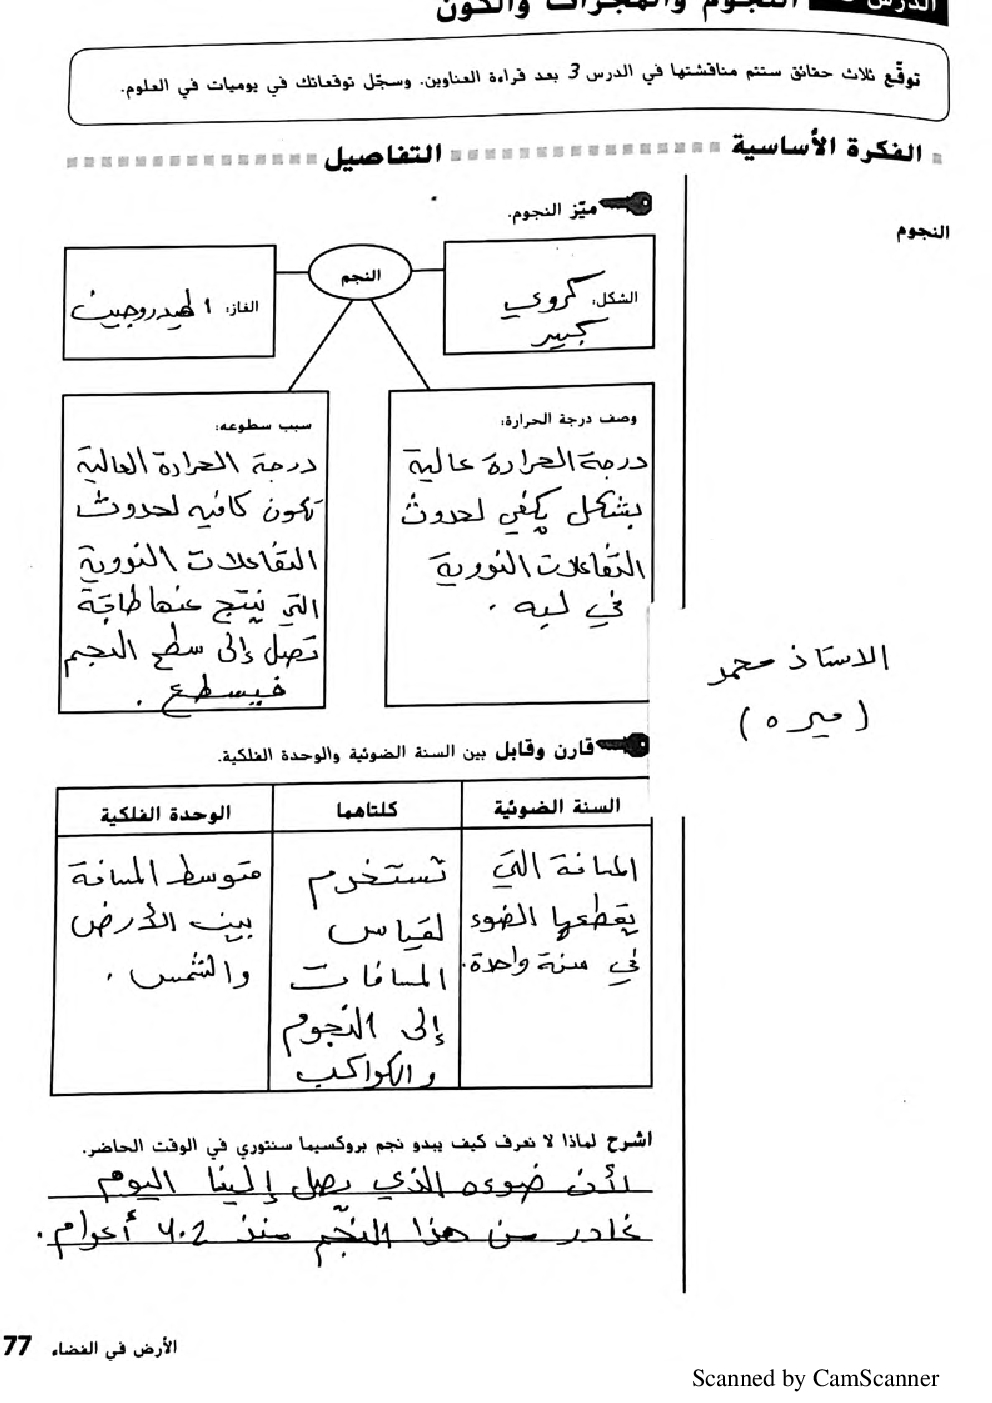 الدرس
النجوم والمجرات والكون
توقّع ثلاث حقائق ستتم مناقشتها في الدرس 3 بعد قراءة العناوين. وسجّل توقعاتك في يوميات في العلوم.
الفكرة الأساسية
التفاصيل
النجوم
ميّز النجوم.
النجم
الشكل: كروي
كبير
الغاز: الهيدروجين
وصف درجة الحرارة:
درجة الحرارة عالية
بشكل يكفي لحدوث
التفاعلات النووية
في لبه.
سبب سطوعه:
درجة الحرارة العالية
تكون كافيه لحدوث
التفاعلات النووية
التي ينتج عنها طاقة
تصل إلى سطح النجم
فيسطع.
الاستاذ محمد
(ميره)
قارن وقابل بين السنة الضوئية والوحدة الفلكية.
السنة الضوئية
كلتاهما
الوحدة الفلكية
المسافة التي
يقطعها الضوء
في سنة واحدة.
تستخدم
لقياس
المسافات
إلى النجوم
والكواكب
متوسط المسافة
بين الأرض
والشمس.
اشرح لماذا لا نعرف كيف يبدو نجم بروكسيما سنتوري في الوقت الحاضر.
لأن ضوءه الذي يصل إلينا اليوم
غادر من هذا النجم منذ أعوام.
الأرض في الفضاء 77
Scanned by CamScanner